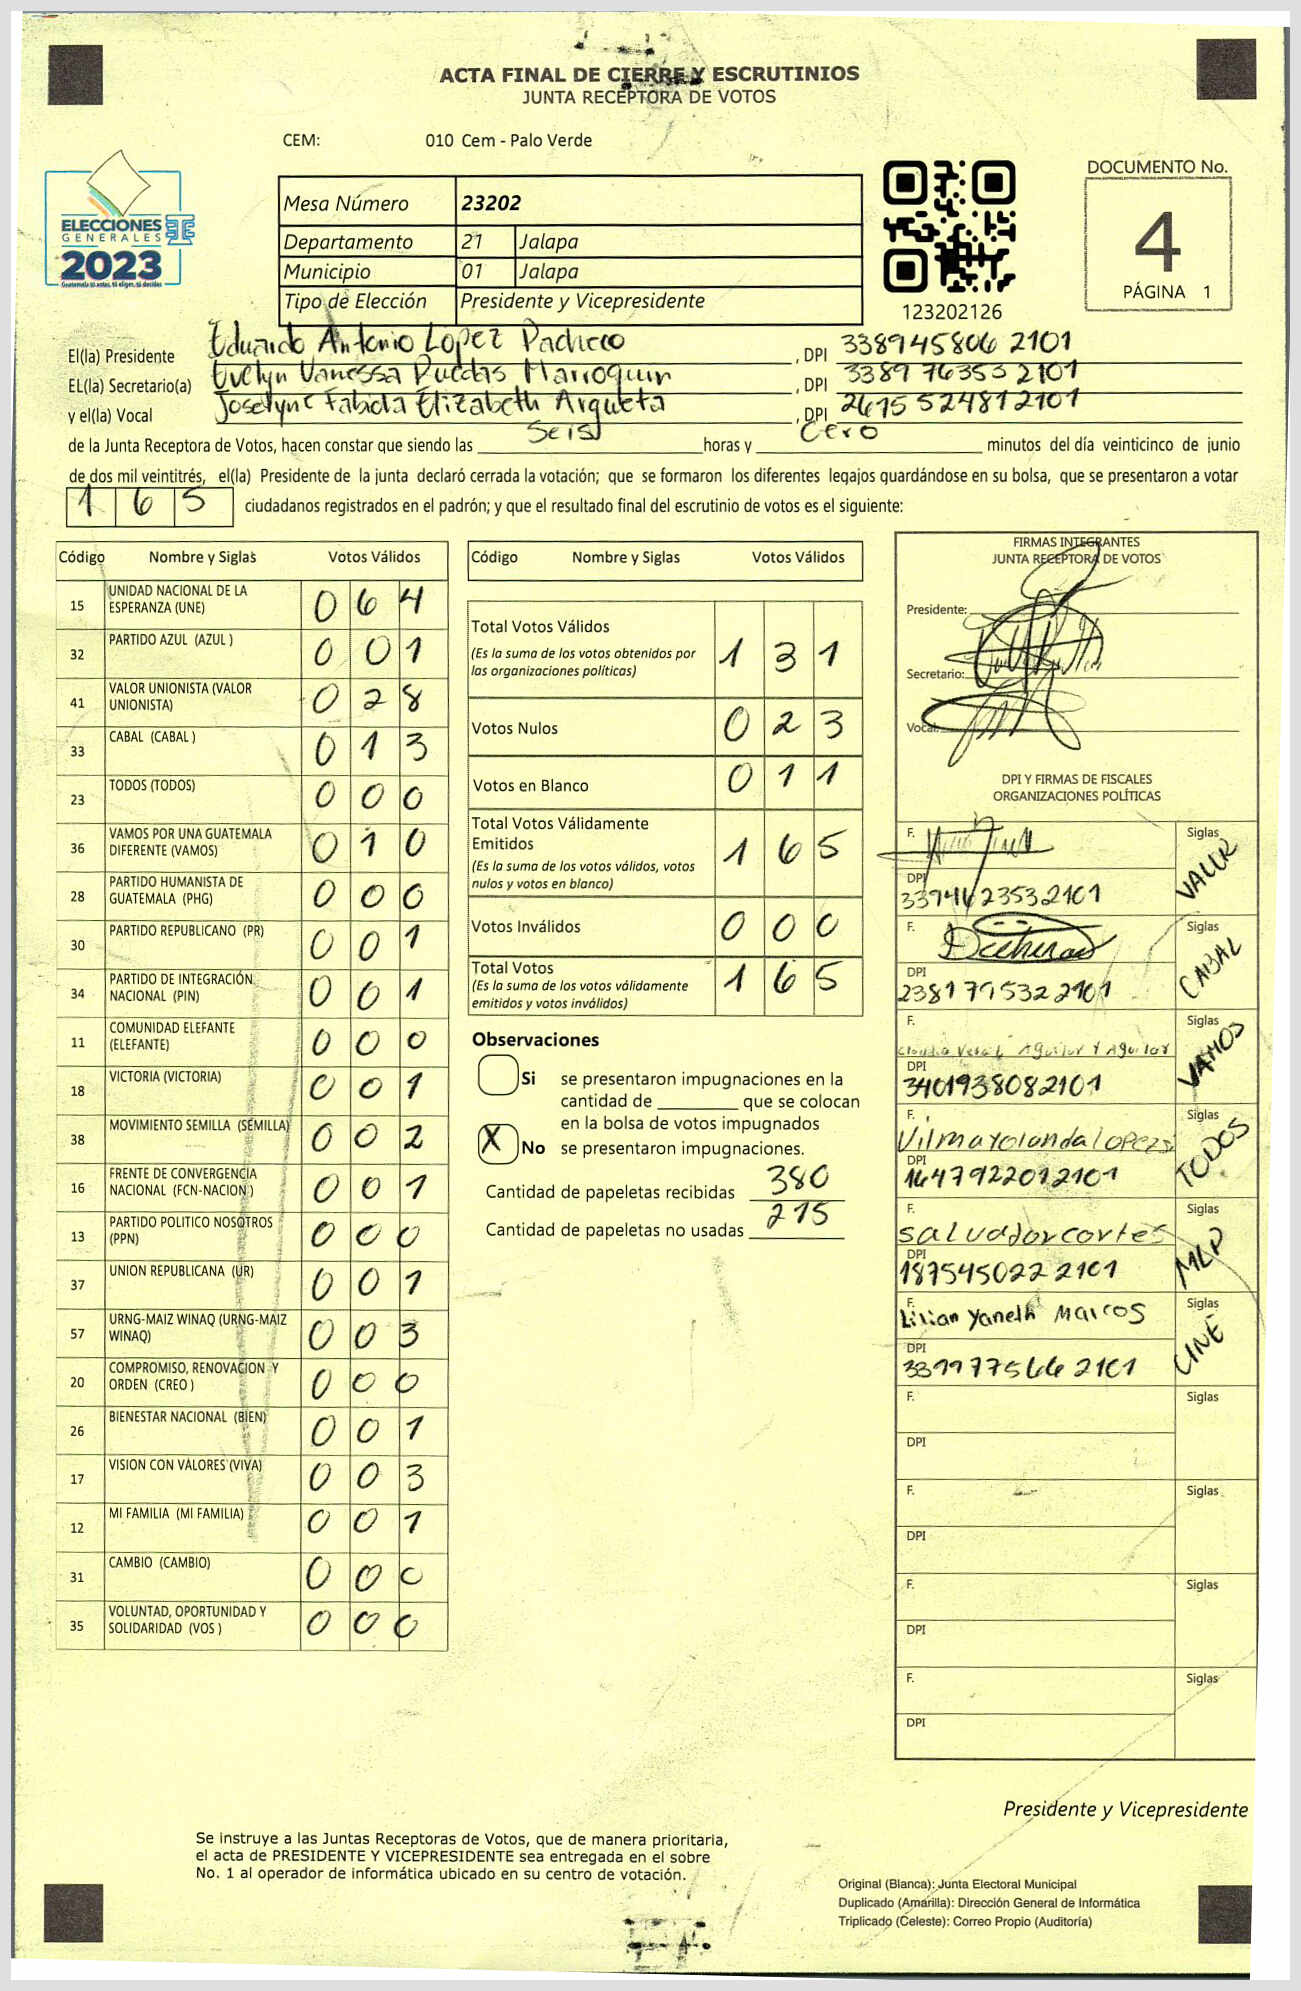 ACTA FINAL DE CIERRE Y ESCRUTINIOS
JUNTA RECEPTORA DE VOTOS
CEM: 010 Cem - Palo Verde
ELECCIONES
GENERALES
2023
Guatemala tú votas, tú eliges, tú decides
Mesa Número 23202
Departamento 21 Jalapa
Municipio 01 Jalapa
Tipo de Elección Presidente y Vicepresidente
123202126
DOCUMENTO No.
4
PÁGINA 1
El(la) Presidente Eduardo Antonio López Pacheco, DPI 338945806 2101
EL(la) Secretario(a) Evelyn Vanessa Marroquin, DPI 3389 76353 2101
y el(la) Vocal Joselyne Fabiola Elizabeth Argueta, DPI 2675 52481 2101
de la Junta Receptora de Votos, hacen constar que siendo las Seis horas y Cero minutos del día veinticinco de junio
de dos mil veintitrés, el(la) Presidente de la junta declaró cerrada la votación; que se formaron los diferentes legajos guardándose en su bolsa, que se presentaron a votar
1 6 5 ciudadanos registrados en el padrón; y que el resultado final del escrutinio de votos es el siguiente:
Código Nombre y Siglas Votos Válidos
15 UNIDAD NACIONAL DE LA ESPERANZA (UNE) 0 6 4
32 PARTIDO AZUL (AZUL ) 0 0 1
41 VALOR UNIONISTA (VALOR UNIONISTA) 0 2 8
33 CABAL (CABAL ) 0 1 3
23 TODOS (TODOS) 0 0 0
36 VAMOS POR UNA GUATEMALA DIFERENTE (VAMOS) 0 1 0
28 PARTIDO HUMANISTA DE GUATEMALA (PHG) 0 0 0
30 PARTIDO REPUBLICANO (PR) 0 0 1
34 PARTIDO DE INTEGRACIÓN NACIONAL (PIN) 0 0 1
11 COMUNIDAD ELEFANTE (ELEFANTE) 0 0 0
18 VICTORIA (VICTORIA) 0 0 1
38 MOVIMIENTO SEMILLA (SEMILLA) 0 0 2
16 FRENTE DE CONVERGENCIA NACIONAL (FCN-NACION ) 0 0 1
13 PARTIDO POLITICO NOSOTROS (PPN) 0 0 0
37 UNION REPUBLICANA (UR) 0 0 1
57 URNG-MAIZ WINAQ (URNG-MAIZ WINAQ) 0 0 3
20 COMPROMISO, RENOVACION Y ORDEN (CREO ) 0 0 0
26 BIENESTAR NACIONAL (BIEN) 0 0 1
17 VISION CON VALORES (VIVA) 0 0 3
12 MI FAMILIA (MI FAMILIA) 0 0 1
31 CAMBIO (CAMBIO) 0 0 0
35 VOLUNTAD, OPORTUNIDAD Y SOLIDARIDAD (VOS ) 0 0 0
Código Nombre y Siglas Votos Válidos
Total Votos Válidos 1 3 1
(Es la suma de los votos obtenidos por
las organizaciones políticas)
Votos Nulos 0 2 3
Votos en Blanco 0 1 1
Total Votos Válidamente
Emitidos 1 6 5
(Es la suma de los votos válidos, votos
nulos y votos en blanco)
Votos Inválidos 0 0 0
Total Votos 1 6 5
(Es la suma de los votos válidamente
emitidos y votos inválidos)
Observaciones
Si se presentaron impugnaciones en la
cantidad de ________ que se colocan
en la bolsa de votos impugnados
X No se presentaron impugnaciones.
Cantidad de papeletas recibidas 380
Cantidad de papeletas no usadas 215
FIRMAS INTEGRANTES
JUNTA RECEPTORA DE VOTOS
Presidente:
Secretario:
Vocal:
DPI Y FIRMAS DE FISCALES
ORGANIZACIONES POLÍTICAS
F. Siglas VALOR
DPI
F. Siglas CABAL
DPI
2381 79532 2101
F. Siglas VAMOS
Aguilar Y Aguilar
DPI
3401938082101
F. Siglas TODOS
Vilma yolanda Lopez
DPI
1647922012101
F. Siglas MLP
salvador cortes
DPI
187545022 2101
F. Siglas UNE
Lilian Yaneth Marcos
DPI
339977566 2101
F. Siglas
DPI
F. Siglas
DPI
F. Siglas
DPI
F. Siglas
DPI
Presidente y Vicepresidente
Se instruye a las Juntas Receptoras de Votos, que de manera prioritaria,
el acta de PRESIDENTE Y VICEPRESIDENTE sea entregada en el sobre
No. 1 al operador de informática ubicado en su centro de votación.
Original (Blanca): Junta Electoral Municipal
Duplicado (Amarilla): Dirección General de Informática
Triplicado (Celeste): Correo Propio (Auditoría)